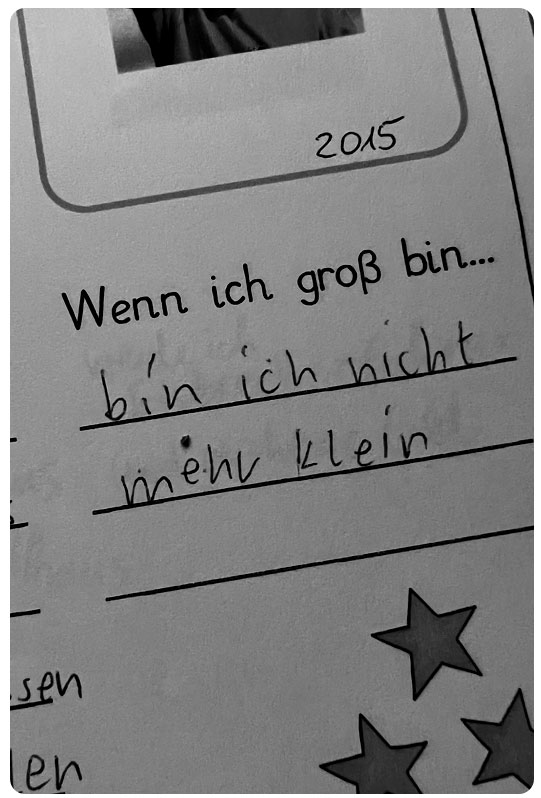 2015
Wenn ich groß bin...
bin ich nicht
mehr klein